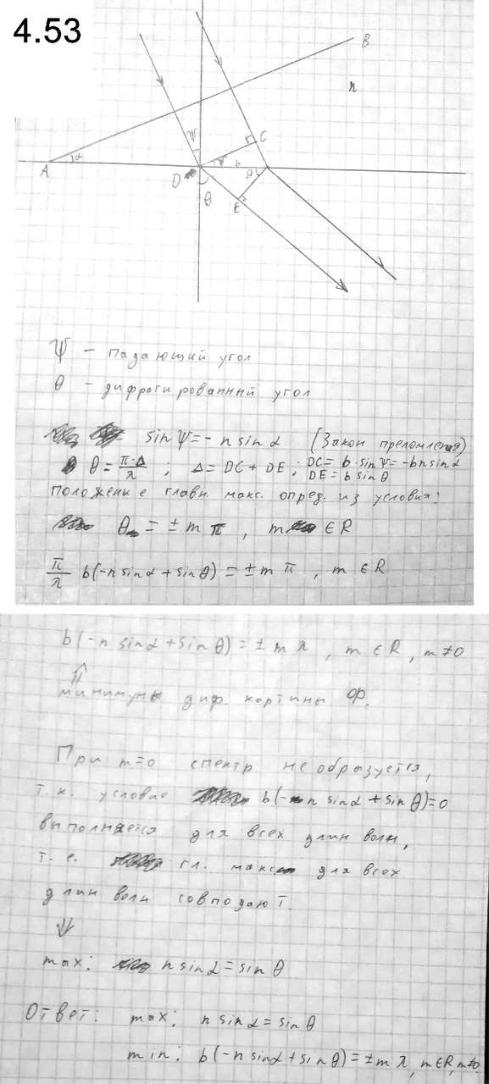 4.53
B
n
ψ
C
A
α
D
b
θ
E
θ
Ψ - падающий угол
θ - дифрогированный угол
sin Ψ = - n sin α (Закон преломления)
θ = π·Δ/λ ; Δ = DC + DE ; DC = b·sin Ψ = -bn sin α
DE = b sin θ
положение главн. макс. опред. из условия:
= ± m π , m ∈ R
π/λ b(-n sin α + sin θ) = ± m π , m ∈ R
b(-n sin α + sin θ) = ± m λ , m ∈ R, m ≠ 0
⇑
минимумы диф. картины Фр.
При m=0 спектр не образуется,
т.к. условие b(-n sin α + sin θ) = 0
выполняется для всех длин волн,
т.е. гл. макс для всех
длин волн совподают.
⇓
max: n sin α = sin θ
Ответ: max: n sin α = sin θ
min: b(-n sin α + sin θ) = ± m λ, m ∈ R, m ≠ 0